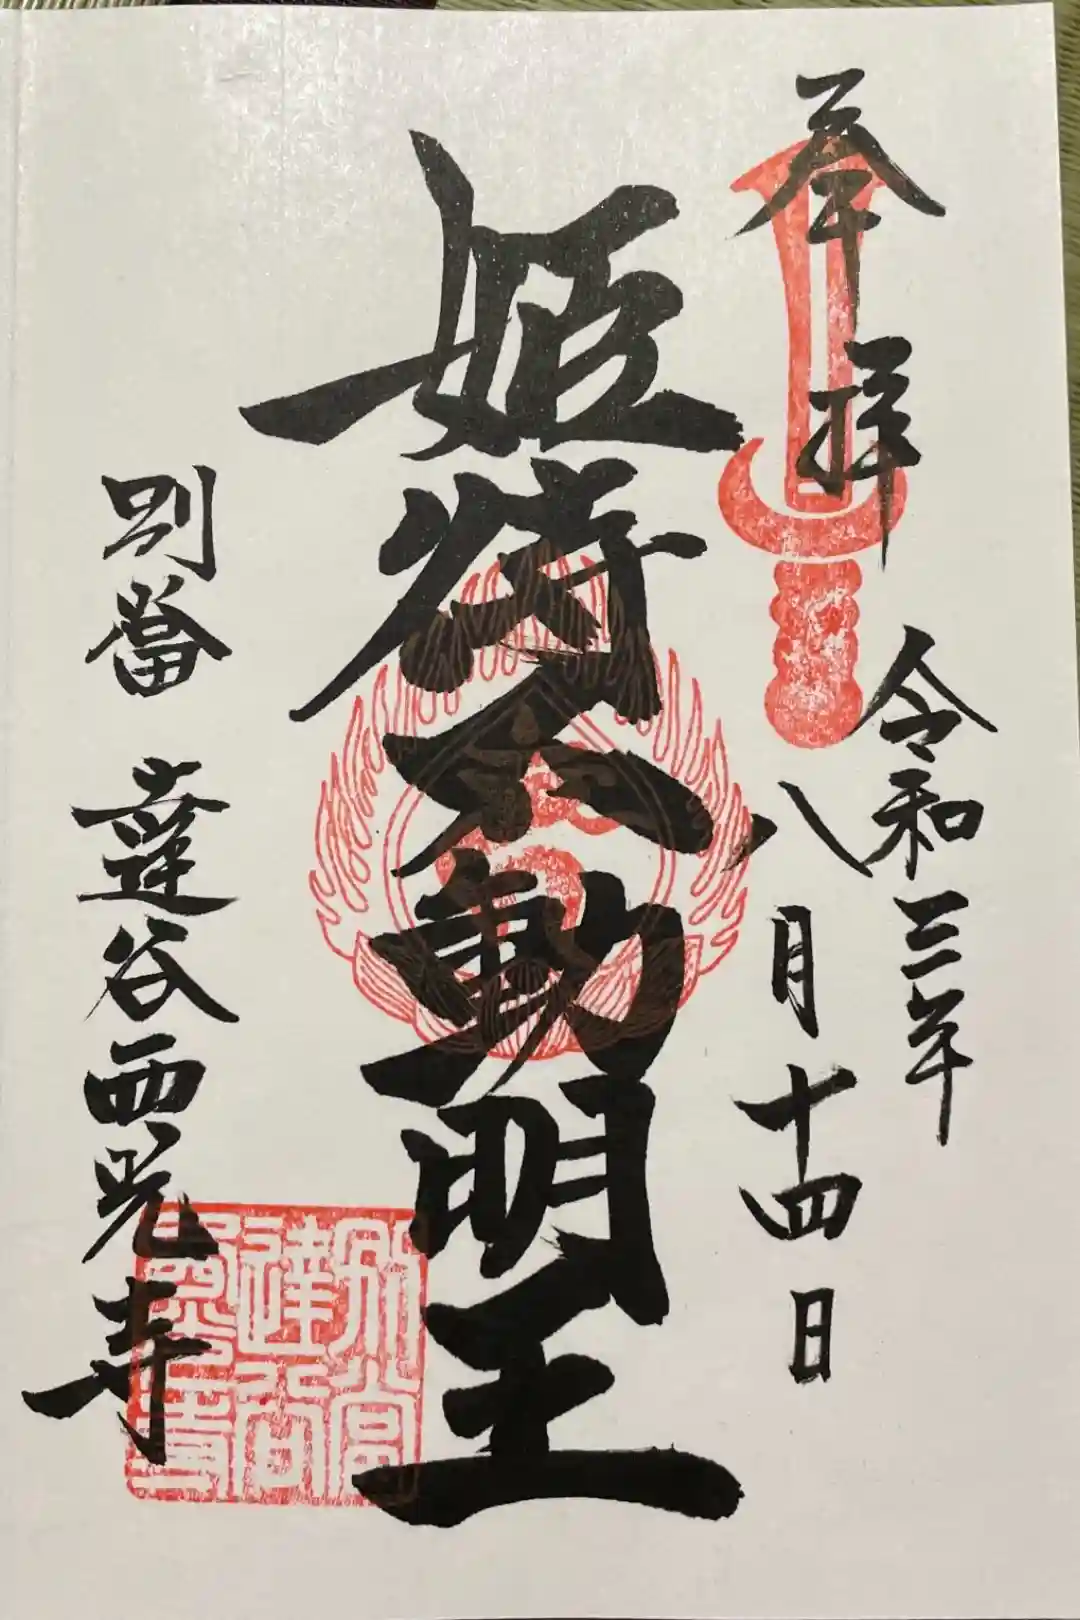 奉拝
令和三年
八月十四日
姫待不動明王
別當 達谷西光寺
別當
達谷
西光寺